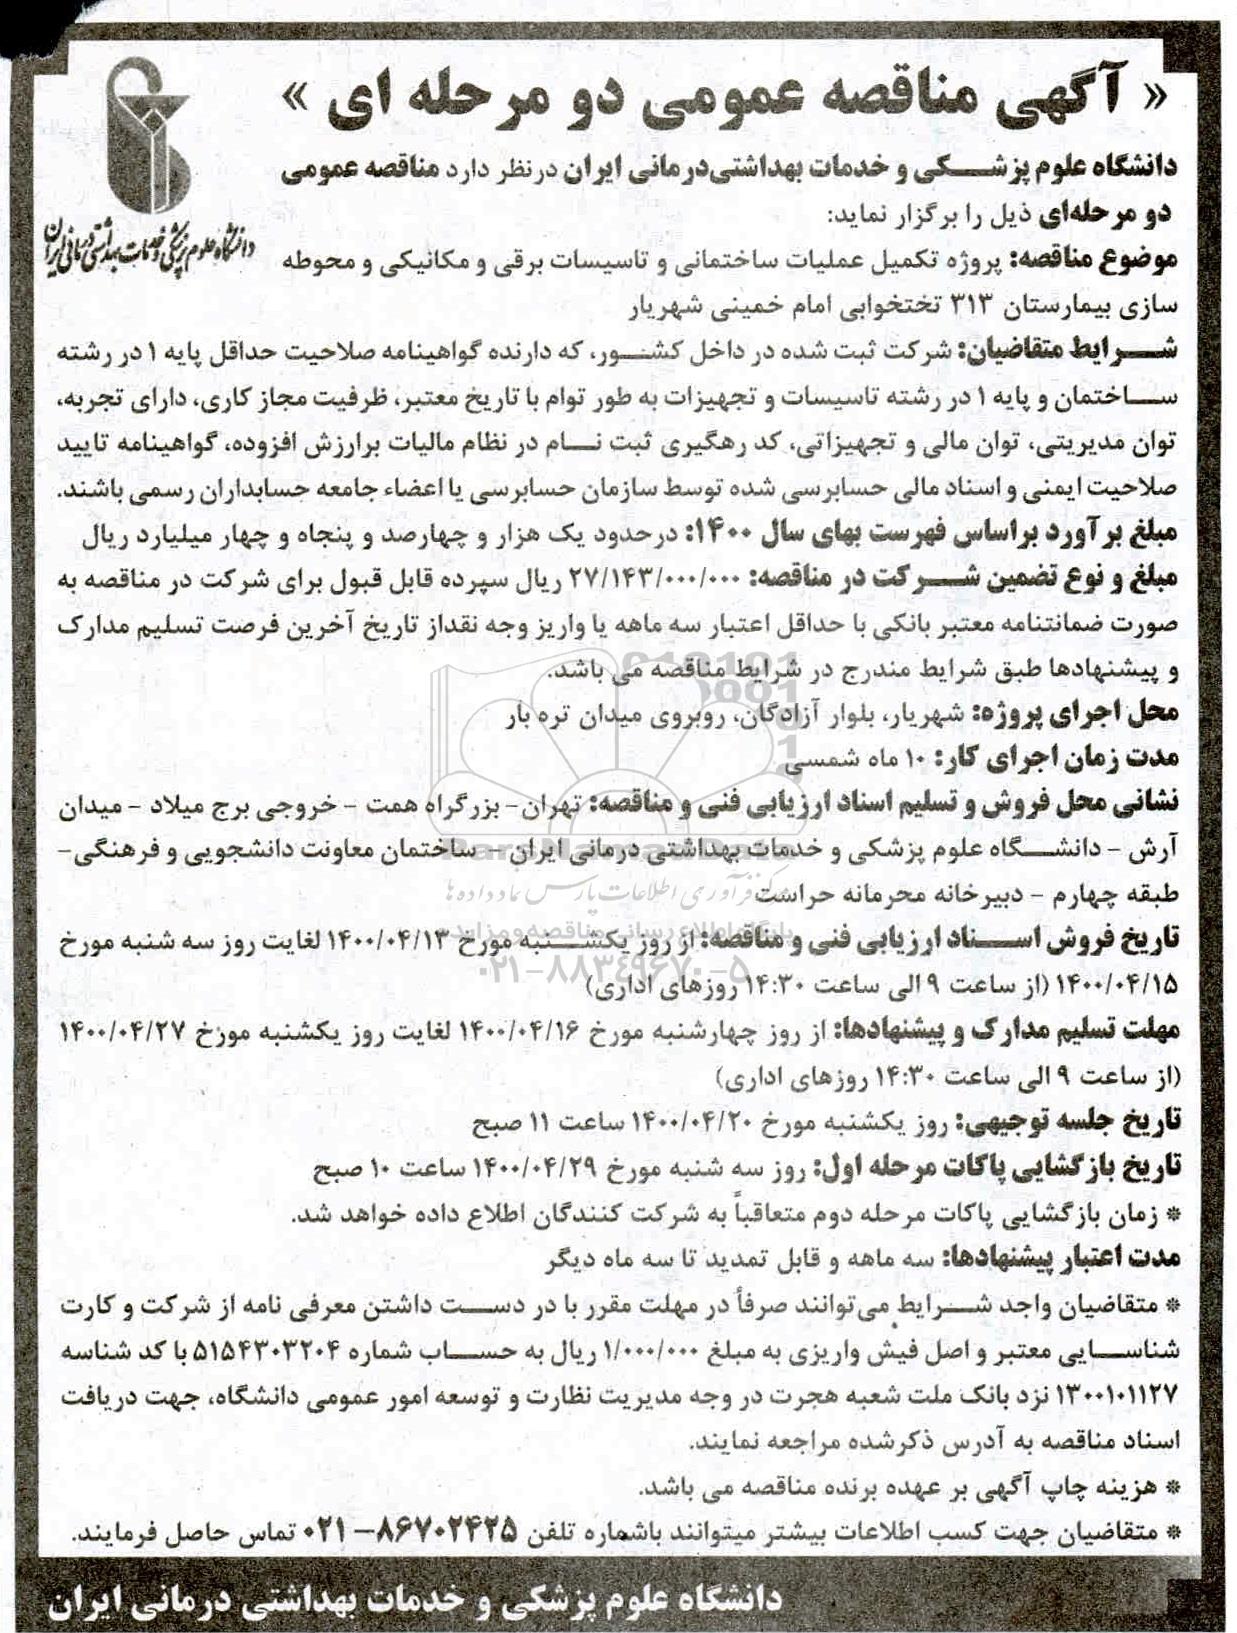 « آگهی مناقصه عمومی دو مرحله ای »
دانشگاه علوم پزشکی و خدمات بهداشتی درمانی ایران
دانشگاه علوم پزشکی و خدمات بهداشتی‌درمانی ایران درنظر دارد مناقصه عمومی
دو مرحله‌ای ذیل را برگزار نماید:
موضوع مناقصه: پروژه تکمیل عملیات ساختمانی و تاسیسات برقی و مکانیکی و محوطه
سازی بیمارستان ۳۱۳ تختخوابی امام خمینی شهریار
شرایط متقاضیان: شرکت ثبت شده در داخل کشور، که دارنده گواهینامه صلاحیت حداقل پایه ۱ در رشته
ساختمان و پایه ۱ در رشته تاسیسات و تجهیزات به طور توام با تاریخ معتبر، ظرفیت مجاز کاری، دارای تجربه،
توان مدیریتی، توان مالی و تجهیزاتی، کد رهگیری ثبت نام در نظام مالیات برارزش افزوده، گواهینامه تایید
صلاحیت ایمنی و اسناد مالی حسابرسی شده توسط سازمان حسابرسی یا اعضاء جامعه حسابداران رسمی باشند.
مبلغ برآورد براساس فهرست بهای سال ۱۴۰۰: درحدود یک هزار و چهارصد و پنجاه و چهار میلیارد ریال
مبلغ و نوع تضمین شرکت در مناقصه: ۲۷/۱۴۳/۰۰۰/۰۰۰ ریال سپرده قابل قبول برای شرکت در مناقصه به
صورت ضمانتنامه معتبر بانکی با حداقل اعتبار سه ماهه یا واریز وجه نقداز تاریخ آخرین فرصت تسلیم مدارک
و پیشنهادها طبق شرایط مندرج در شرایط مناقصه می باشد.
محل اجرای پروژه: شهریار، بلوار آزادگان، روبروی میدان تره بار
مدت زمان اجرای کار: ۱۰ ماه شمسی
نشانی محل فروش و تسلیم اسناد ارزیابی فنی و مناقصه: تهران- بزرگراه همت - خروجی برج میلاد - میدان
آرش - دانشگاه علوم پزشکی و خدمات بهداشتی درمانی ایران - ساختمان معاونت دانشجویی و فرهنگی-
طبقه چهارم - دبیرخانه محرمانه حراست
مرکز فرآوری اطلاعات پارس نماد داده‌ها
تاریخ فروش اسناد ارزیابی فنی و مناقصه: از روز یکشنبه مورخ ۱۴۰۰/۰۴/۱۳ لغایت روز سه شنبه مورخ
۰۲۱-۸۸۳۴۹۶۷۰-۵
۱۴۰۰/۰۴/۱۵ (از ساعت ۹ الی ساعت ۱۴:۳۰ روزهای اداری)
مهلت تسلیم مدارک و پیشنهادها: از روز چهارشنبه مورخ ۱۴۰۰/۰۴/۱۶ لغایت روز یکشنبه مورخ ۱۴۰۰/۰۴/۲۷
(از ساعت ۹ الی ساعت ۱۴:۳۰ روزهای اداری)
تاریخ جلسه توجیهی: روز یکشنبه مورخ ۱۴۰۰/۰۴/۲۰ ساعت ۱۱ صبح
تاریخ بازگشایی پاکات مرحله اول: روز سه شنبه مورخ ۱۴۰۰/۰۴/۲۹ ساعت ۱۰ صبح
* زمان بازگشایی پاکات مرحله دوم متعاقباً به شرکت کنندگان اطلاع داده خواهد شد.
مدت اعتبار پیشنهادها: سه ماهه و قابل تمدید تا سه ماه دیگر
* متقاضیان واجد شرایط می‌توانند صرفاً در مهلت مقرر با در دست داشتن معرفی نامه از شرکت و کارت
شناسایی معتبر و اصل فیش واریزی به مبلغ ۱/۰۰۰/۰۰۰ ریال به حساب شماره ۵۱۵۴۳۰۳۲۰۴ با کد شناسه
۱۳۰۰۱۰۱۱۲۷ نزد بانک ملت شعبه هجرت در وجه مدیریت نظارت و توسعه امور عمومی دانشگاه، جهت دریافت
اسناد مناقصه به آدرس ذکرشده مراجعه نمایند.
* هزینه چاپ آگهی بر عهده برنده مناقصه می باشد.
* متقاضیان جهت کسب اطلاعات بیشتر میتوانند باشماره تلفن ۸۶۷۰۲۴۲۵-۰۲۱ تماس حاصل فرمایند.
دانشگاه علوم پزشکی و خدمات بهداشتی درمانی ایران